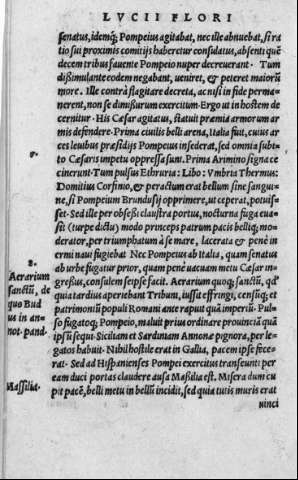 LVCII FLORI
senatus, idemq; Pompeius agitabat, nec ille abnuebat, si ra
tio sui proximis comitijs haberetur consulatus, absenti quē
decem tribus fauente Pompeio nuper decreuerant. Tum
dißimulante codem negabant, ueniret, & peteret maiorū
more. Ille contrà flagitare decreta, ac nisi in fide perma
nerent, non se dimißurum exercitum. Ergo ut in hostem de
cernitur. His Cæsar agitatus, statuit præmia armorum ar
mis defendere. Prima ciuilis belli arena, Italia fuit, cuius ar
ces leuibus præsidijs Pompeius insederat, sed omnia subi-
to Cæsaris impetu oppressa sunt. Prima Arimino signa ce
cinerunt. Tum pulsus Ethruria: Libo: Vmbria Thermus:
Domitius Corfinio, & peractum erat bellum sine sangui-
ne, si Pompeium Brundusij opprimere, ut ceperat, potuis-
set. Sed ille per obseßi claustra portus, nocturna fuga eua-
sit (turpe dictu) modo princeps patrum pacis belliq; mo-
derator, per triumphatum à se mare, lacerata & penè in
ermi naui fugiebat. Nec Pompeius ab Italia, quam senatus
ab urbe fugatur prior, quam penè uacuam metu Cæsar in-
greßus, consulem seipse facit. Aerarium quoq; sanctū, qđ
quia tardius aperiebant Tribuni, iußit effringi, censūq; et
patrimoniū populi Romani ante rapuit quā imperiū. Pul-
so fugatoq; Pompeio, maluit prius ordinare prouinciā quā
ipsū sequi. Siciliam et Sardiniam Annonæ pignora, per le-
gatos habuit. Nihil hostile erat in Gallia, pacem ipse fece-
rat. Sed ad Hispanienses Pompei exercitus transeunti per
eam duci portas claudere ausa Maßilia est. Misera dum cu
pit pacē, belli metu in bellū incidit, sed quia tutis muris erat
uinci
Aerarium
sanctū, de
quo Bud
us in an-
not. pand.
Maßilia.